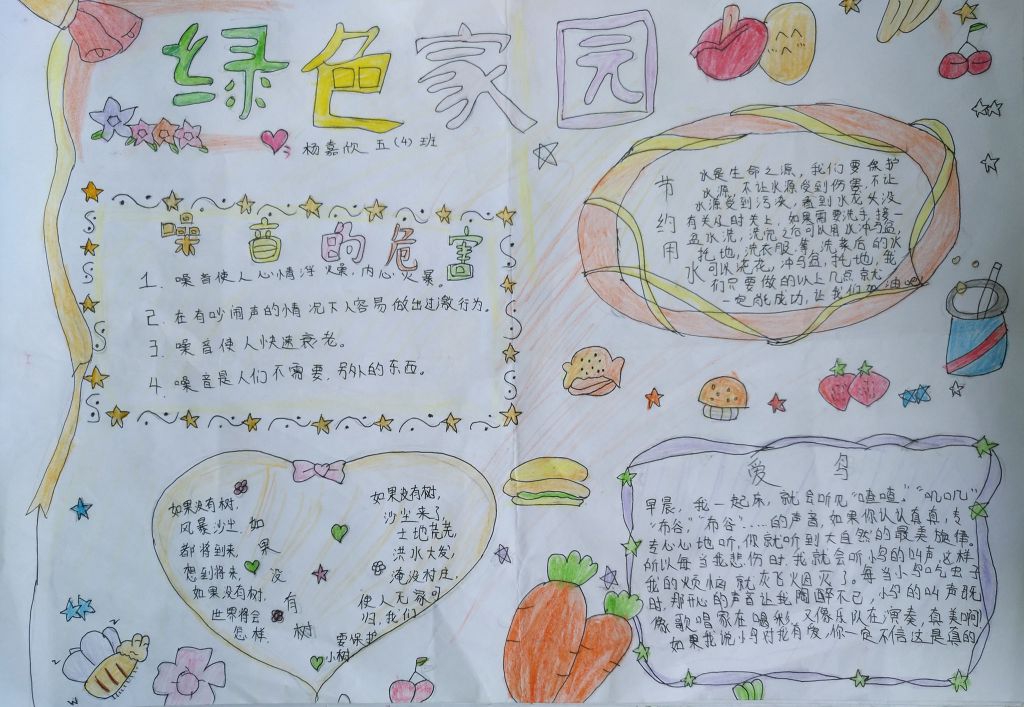 绿色家园
杨嘉欣 五(4)班
噪音的危害
1. 噪音使人心情浮燥,内心火暴。
2. 在有吵闹声的情况下人容易做出过激行为。
3. 噪音使人快速衰老。
4. 噪音是人们不需要,别外的东西。
节约用水
水是生命之源,我们要保护
水源,不让水源受到伤害,不让
水源受到污染,看到水龙头没
有关及时关上,如果需要洗手,接一
盆水洗,洗完之后可以用此冲马盆,
拖地,洗衣服、黄,洗菜后的水
可以浇花,冲马盆,拖地,我
们只要做的以上几点就
一定能成功,让我们加油吧
如果没有树
如果没有树,
风暴沙尘,
都将到来,
想到将来,
如果没有树,
世界将会
怎样.
如果没有树,
沙尘来了,
土地荒芜,
洪水大发,
淹没村庄,
使人无家可
归,我们
要保护
小树
爱鸟
早晨,我一起床,就会听见“喳喳”“叽叽”
“布谷”,“布谷”.....的声音,如果你认认真真,专
专心心地听,你就听到大自然的最美旋律。
所以每当我悲伤时,我就会听小鸟的叫声,这样
我的烦恼就灰飞烟灭了。每当小鸟吃虫子
时,那开心的声音让我陶醉不已,小鸟的叫声既
像歌唱家在喝彩,又像乐队在演奏,真美啊
如果我说小鸟对我有爱,你一定不信这是真的